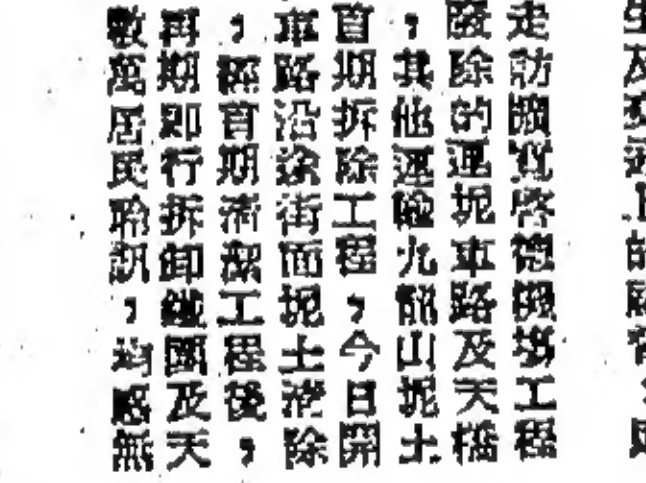 走訪擴寬啓德機場工程
廢除的運坭車路及天橋
，其他運輸九龍山坭土
首期拆除工程，今日開
車路沿途街面坭土清除
，經首期清潔工程後，
再期即行拆卸鐵圍及天
數萬居民聆訊，均感無